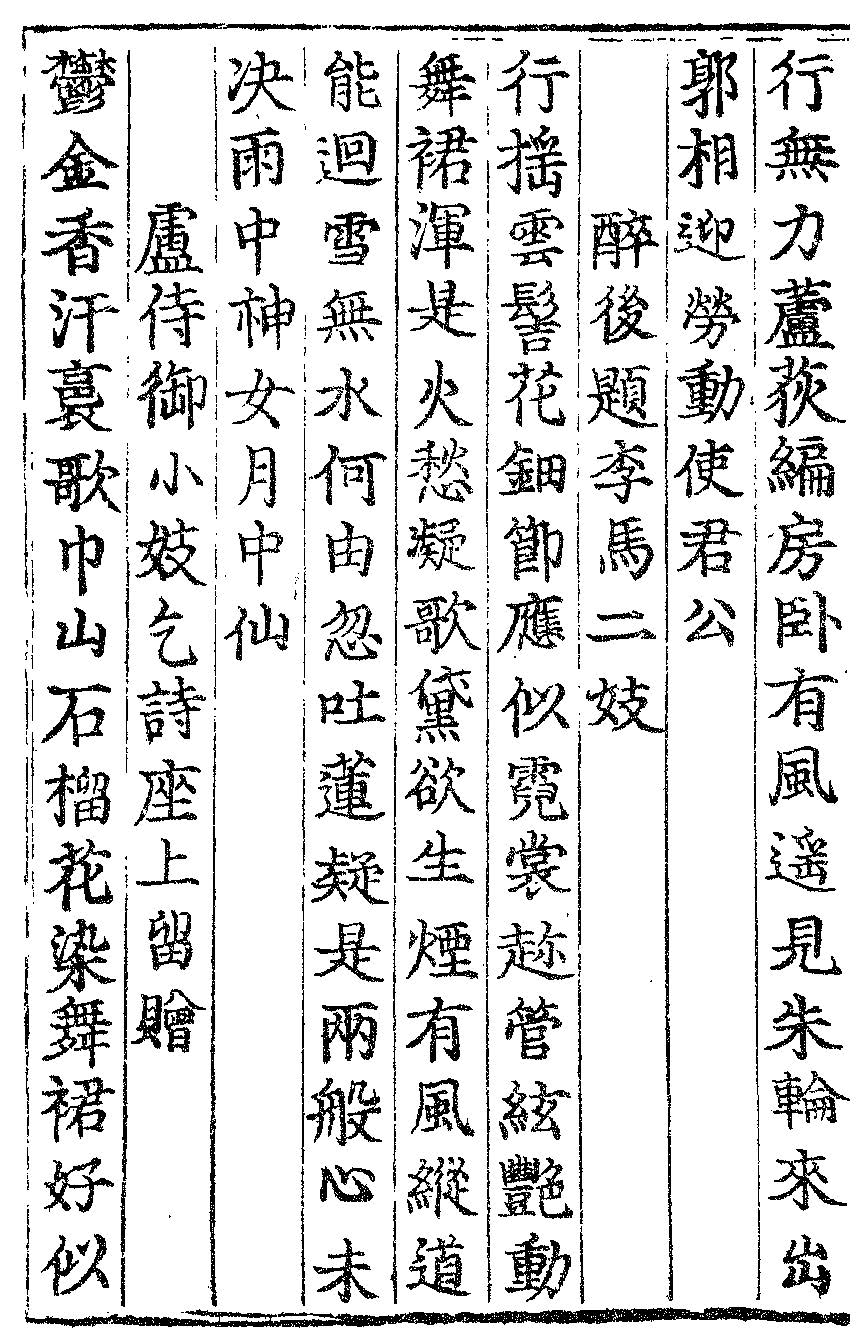 行無力蘆荻編房卧有風遥見朱輪來出
郭相迎勞動使君公
醉後題李馬二妓
行揺雲髻花鈿節應似霓裳趂管絃艷動
舞裙渾是火愁凝歌黛欲生煙有風縱道
能迴雪無水何由忽吐蓮疑是兩般心未
决雨中神女月中仙
盧侍御小妓乞詩座上留贈
鬱金香汗裛歌巾山石榴花染舞裙好似